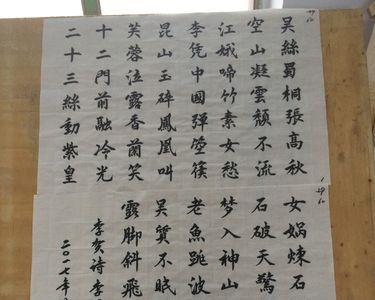 吴絲蜀桐張高秋
空山凝雲頹不流
江娥啼竹素女愁
李凭中國彈箜篌
昆山玉碎鳳凰叫
芙蓉泣露香蘭笑
十二門前融冷光
二十三絲動紫皇
女媧煉石
石破天驚
梦入神山
老魚跳波
吴質不眠
露脚斜飛
李贺诗李
二〇一七年